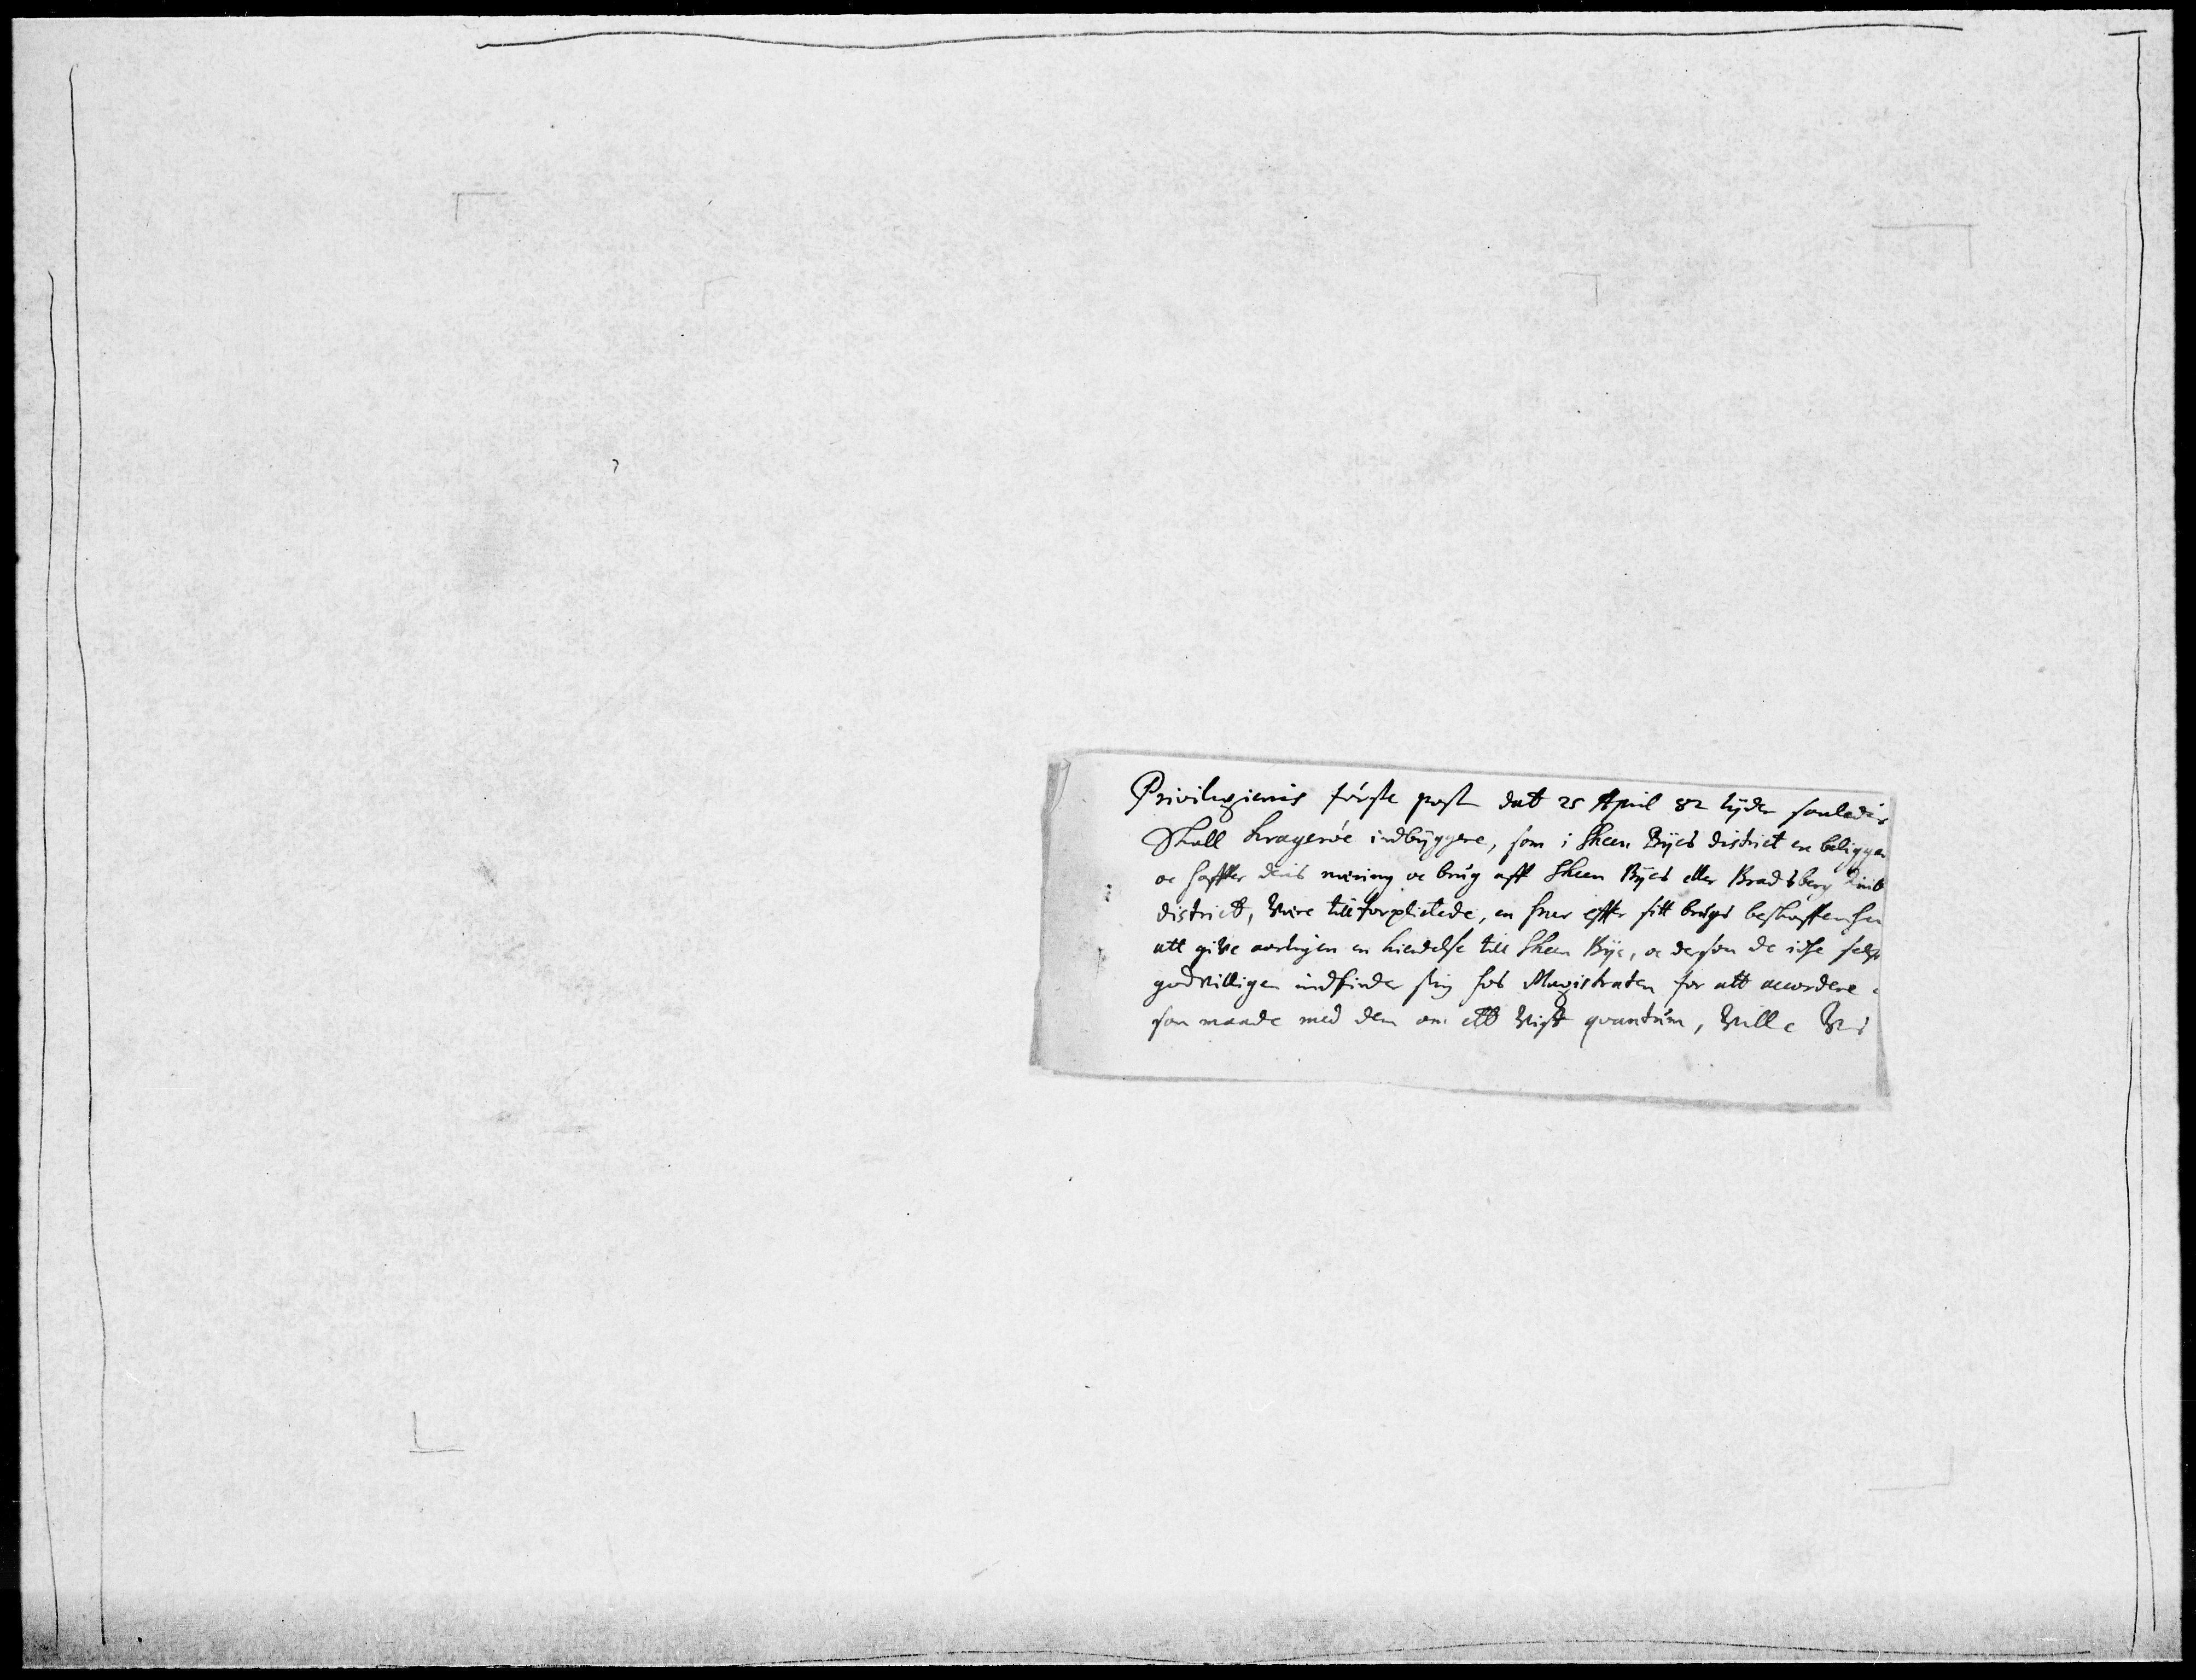 Privilegiernis første post dat 25 April 82 lÿder saaledis
Skall Kragerøe indbÿggere, som i Skeen Bÿes district ere beliggen
oc haffver deris næring oc brug aff Skeen Bÿes eller Bradsberg
district, Være till forplictede, en huer effter sitt brugs beskaffenhed
att give aarligen en kiendelse till Skeen Bÿe, oc dersom de icke selff
godvilligen indfinder sig hos Magistraten for att accordere
saa maade med dem om ett Vist quantum, Ville Vi